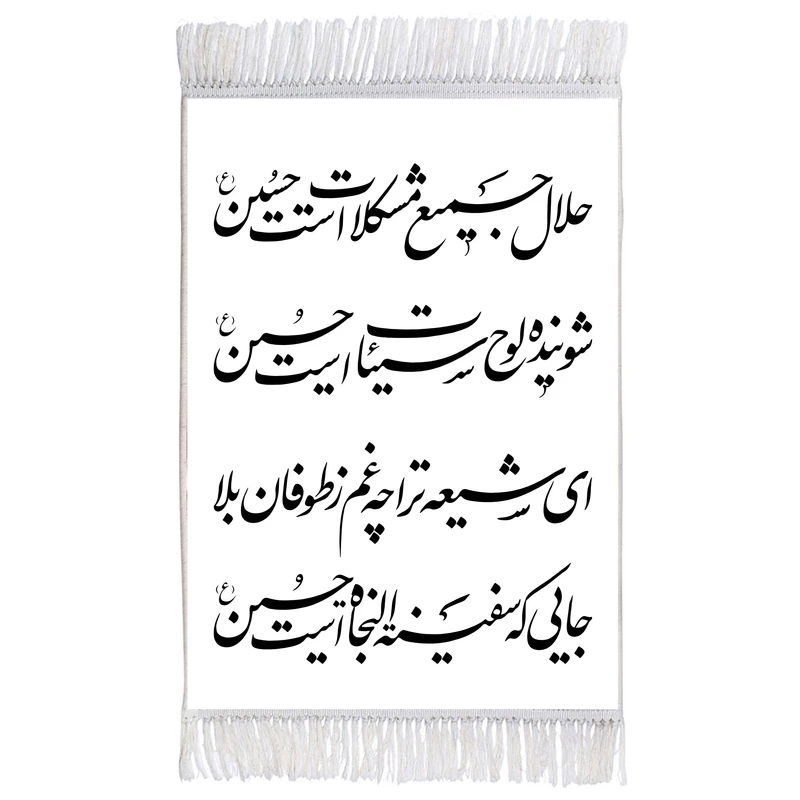 حلال جمیع مشکلات است حسین (ع)
شوینده لوح سیئات است حسین (ع)
ای شیعه ترا چه غم ز طوفان بلا
جایی که سفینه النجاة است حسین (ع)